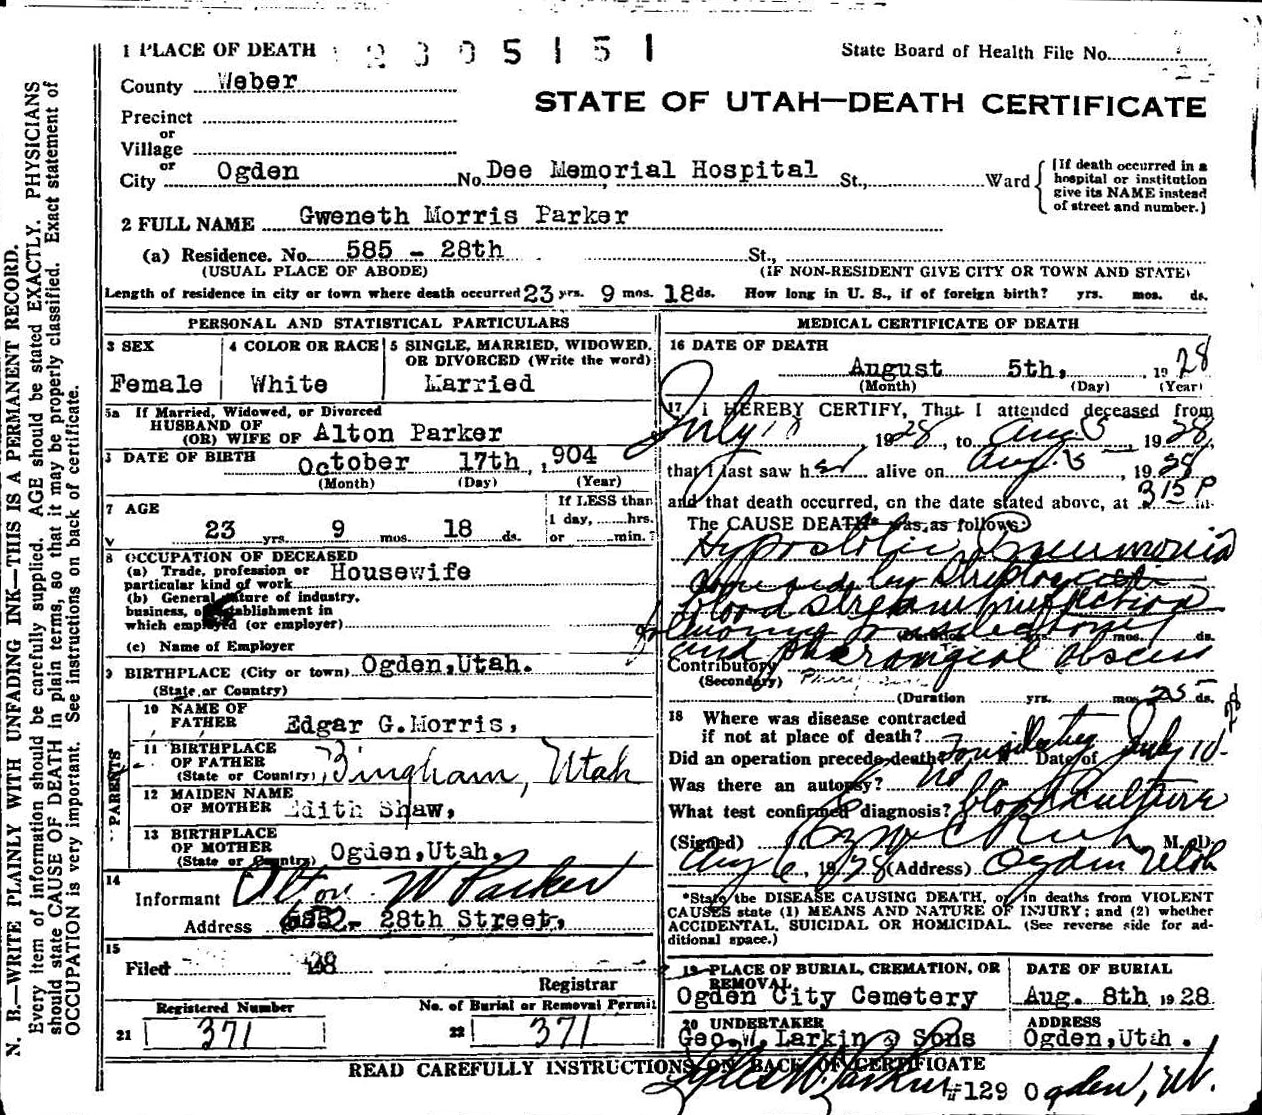 1 PLACE OF DEATH 2305151 State Board of Health File No.
County Weber
STATE OF UTAH—DEATH CERTIFICATE
Precinct
or
Village
or
City Ogden No. Dee Memorial Hospital St., Ward
[If death occurred in a hospital or institution give its NAME instead of street and number.]
2 FULL NAME Gweneth Morris Parker
(a) Residence. No. 585 - 28th St.,
(USUAL PLACE OF ABODE) (IF NON-RESIDENT GIVE CITY OR TOWN AND STATE)
Length of residence in city or town where death occurred 23 yrs. 9 mos. 18 ds. How long in U. S., if of foreign birth? yrs. mos. ds.
PERSONAL AND STATISTICAL PARTICULARS
3 SEX 4 COLOR OR RACE 5 SINGLE, MARRIED, WIDOWED, OR DIVORCED (Write the word)
Female White Married
5a If Married, Widowed, or Divorced
HUSBAND OF
(OR) WIFE OF Alton Parker
DATE OF BIRTH October 17th, ,904
(Month) (Day) (Year)
7 AGE If LESS than
1 day, hrs.
23 yrs. 9 mos. 18 ds. or min.?
8 OCCUPATION OF DECEASED
(a) Trade, profession or
particular kind of work Housewife
(b) General nature of industry,
business, or establishment in
which employed (or employer)
(c) Name of Employer
9 BIRTHPLACE (City or town) Ogden,Utah.
(State or Country)
PARENTS
10 NAME OF
FATHER Edgar G.Morris,
11 BIRTHPLACE
OF FATHER
(State or Country) Bingham, Utah
12 MAIDEN NAME
OF MOTHER Edith Shaw,
13 BIRTHPLACE
OF MOTHER
(State or Country) Ogden,Utah.
14
Informant Alton W Parker
Address 585 - 28th Street,
15
Filed 28
Registrar
Registered Number No. of Burial or Removal Permit
21 371 22 371
MEDICAL CERTIFICATE OF DEATH
16 DATE OF DEATH
August 5th, 1928
(Month) (Day) (Year)
17 I HEREBY CERTIFY, That I attended deceased from
July 18, 1928, to Aug 5, 1928,
that I last saw her alive on Aug. 5 1928
and that death occurred, on the date stated above, at 315 P m.
The CAUSE DEATH* was as follows:
Hypostatic Pneumonia
by
blood stream infection
following tonsilectomy
(Duration) yrs. mos. ds.
and pharangial abscess
Contributory
(Secondary)
(Duration) yrs. mos. 25 ds.
18 Where was disease contracted
if not at place of death?
Did an operation precede death? Date of July 10-28
Was there an autopsy? no
What test confirmed diagnosis? blood culture
(Signed) M. D.
Aug 6, 1928 (Address) Ogden Utah
*State the DISEASE CAUSING DEATH, or in deaths from VIOLENT
CAUSES state (1) MEANS AND NATURE OF INJURY; and (2) whether
ACCIDENTAL, SUICIDAL OR HOMICIDAL. (See reverse side for ad-
ditional space.)
19 PLACE OF BURIAL, CREMATION, OR REMOVAL DATE OF BURIAL
Ogden City Cemetery Aug. 8th 1928
20 UNDERTAKER ADDRESS
Geo.W. Larkin @ Sons Ogden,Utah.
READ CAREFULLY INSTRUCTIONS ON BACK OF CERTIFICATE
#129 Ogden, Ut.
N. B.—WRITE PLAINLY WITH UNFADING INK—THIS IS A PERMANENT RECORD.
Every item of information should be carefully supplied. AGE should be stated EXACTLY. PHYSICIANS
should state CAUSE OF DEATH in plain terms, so that it may be properly classified. Exact statement of
OCCUPATION is very important. See instructions on back of certificate.